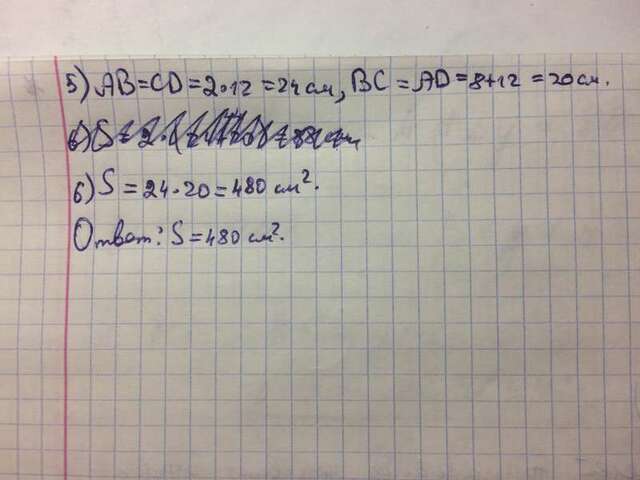 5) AB=CD=2·12=24см, BC=AD=8+12=20см.
6) S=24·20=480 см².
Ответ: S=480 см².